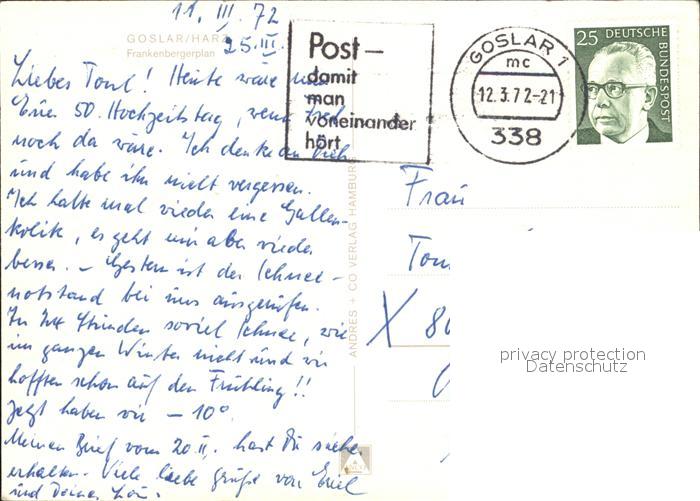 11. III. 72
25. III.
GOSLAR/HARZ
Frankenbergerplan
Liebes Toul! Heute wäre
Eure 50. Hochzeitstag, wenn
noch da wäre. Ich denke an Dich
und habe ihn nicht vergessen.
Ich hatte mal wieder eine Gallen-
kolik, es geht mir aber wieder
besser. – Gestern ist der Schnee-
notstand bei uns ausgerufen.
In 24 Stunden soviel Schnee, wie
im ganzen Winter nicht und wir
hofften schon auf den Frühling!!
Jetzt haben wir – 10°
Meinen Brief vom 20. II. hast Du sicher
erhalten. Viele liebe Grüße von
und Deiner
ANDRES + CO VERLAG HAMBURG
Post –
damit
man
voneinander
hört
GOSLAR 1
mc
12.3.72-21
338
25 DEUTSCHE
BUNDESPOST
Frau
X 80
privacy protection
Datenschutz